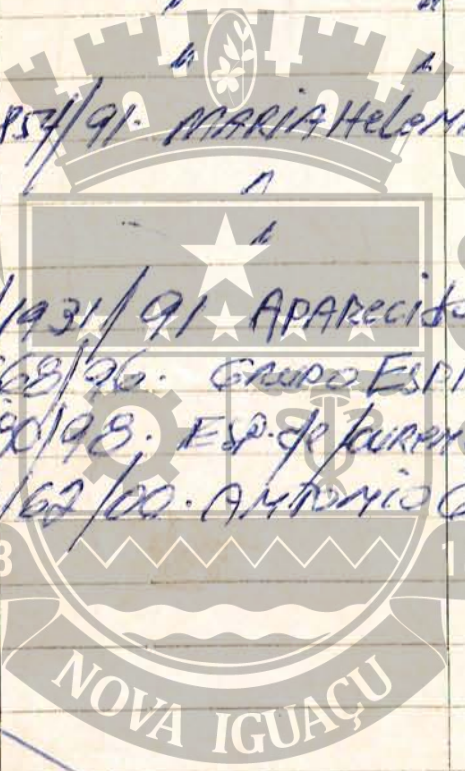 " "
" "
854/91. MARIA HeleN
"
"
/1931/91 APARECIdo
68/96. GRUPO ESPI
90/98. ESP. de louren
/62/00. ANTONIO C
3 1
NOVA IGUAÇU